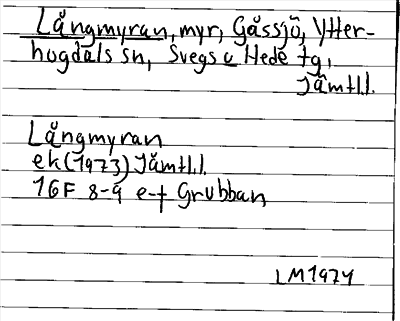 Långmyran, myr, Gåssjö, Ytter-
hogdals sn, Svegs o Hede tg,
Jämtl.l.
Långmyran
ek (1973) Jämtl.l.
16F 8-9 e-f Grubban
LM1974